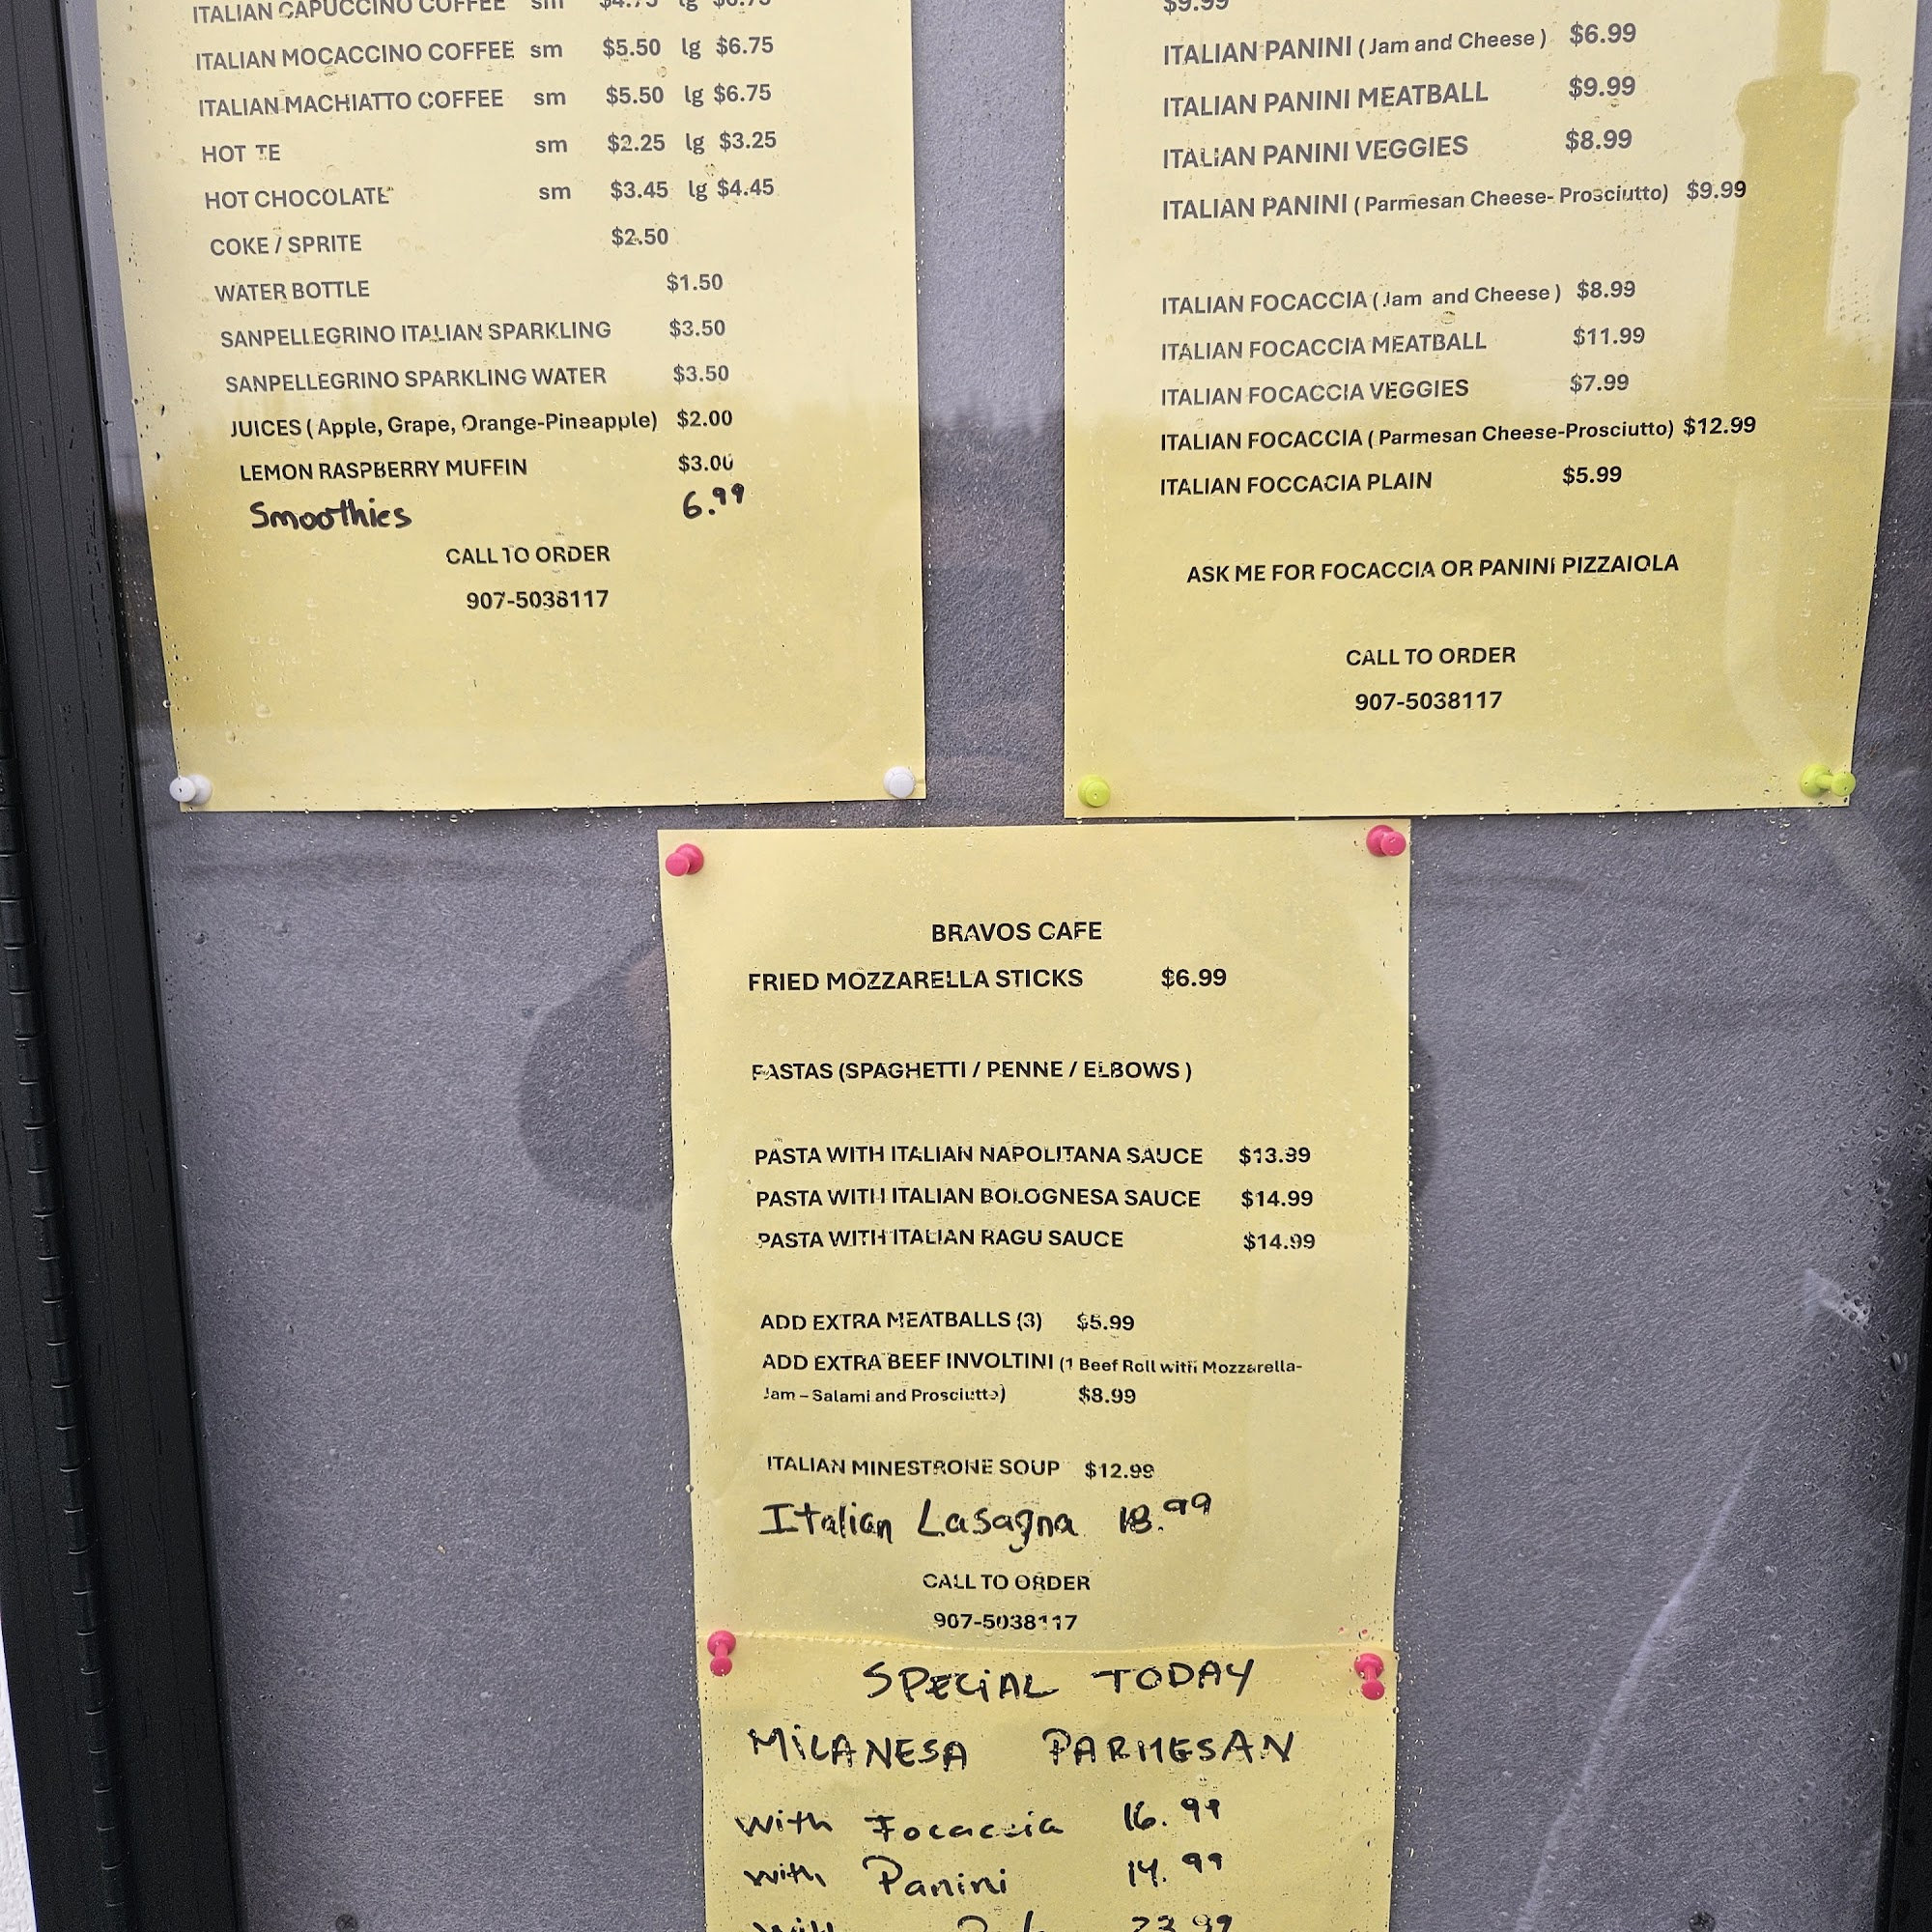 ITALIAN CAPUCCINO COFFEE sm $4.75 lg $6.75
ITALIAN MOCACCINO COFFEE sm $5.50 lg $6.75
ITALIAN MACHIATTO COFFEE sm $5.50 lg $6.75
HOT TE sm $2.25 lg $3.25
HOT CHOCOLATE sm $3.45 lg $4.45
COKE / SPRITE $2.50
WATER BOTTLE $1.50
SANPELLEGRINO ITALIAN SPARKLING $3.50
SANPELLEGRINO SPARKLING WATER $3.50
JUICES ( Apple, Grape, Orange-Pineapple) $2.00
LEMON RASPBERRY MUFFIN $3.00
Smoothies 6.99
CALL TO ORDER
907-5038117
$9.99
ITALIAN PANINI ( Jam and Cheese ) $6.99
ITALIAN PANINI MEATBALL $9.99
ITALIAN PANINI VEGGIES $8.99
ITALIAN PANINI ( Parmesan Cheese- Prosciutto) $9.99
ITALIAN FOCACCIA ( Jam and Cheese ) $8.99
ITALIAN FOCACCIA MEATBALL $11.99
ITALIAN FOCACCIA VEGGIES $7.99
ITALIAN FOCACCIA ( Parmesan Cheese-Prosciutto) $12.99
ITALIAN FOCCACIA PLAIN $5.99
ASK ME FOR FOCACCIA OR PANINI PIZZAIOLA
CALL TO ORDER
907-5038117
BRAVOS CAFE
FRIED MOZZARELLA STICKS $6.99
PASTAS (SPAGHETTI / PENNE / ELBOWS )
PASTA WITH ITALIAN NAPOLITANA SAUCE $13.99
PASTA WITH ITALIAN BOLOGNESA SAUCE $14.99
PASTA WITH ITALIAN RAGU SAUCE $14.99
ADD EXTRA MEATBALLS (3) $5.99
ADD EXTRA BEEF INVOLTINI (1 Beef Roll with Mozzarella-
Jam – Salami and Prosciutto) $8.99
ITALIAN MINESTRONE SOUP $12.99
Italian Lasagna 18.99
CALL TO ORDER
907-5038117
SPECIAL TODAY
MILANESA PARMESAN
with Focaccia 16.99
with Panini 14.99
with 23.99